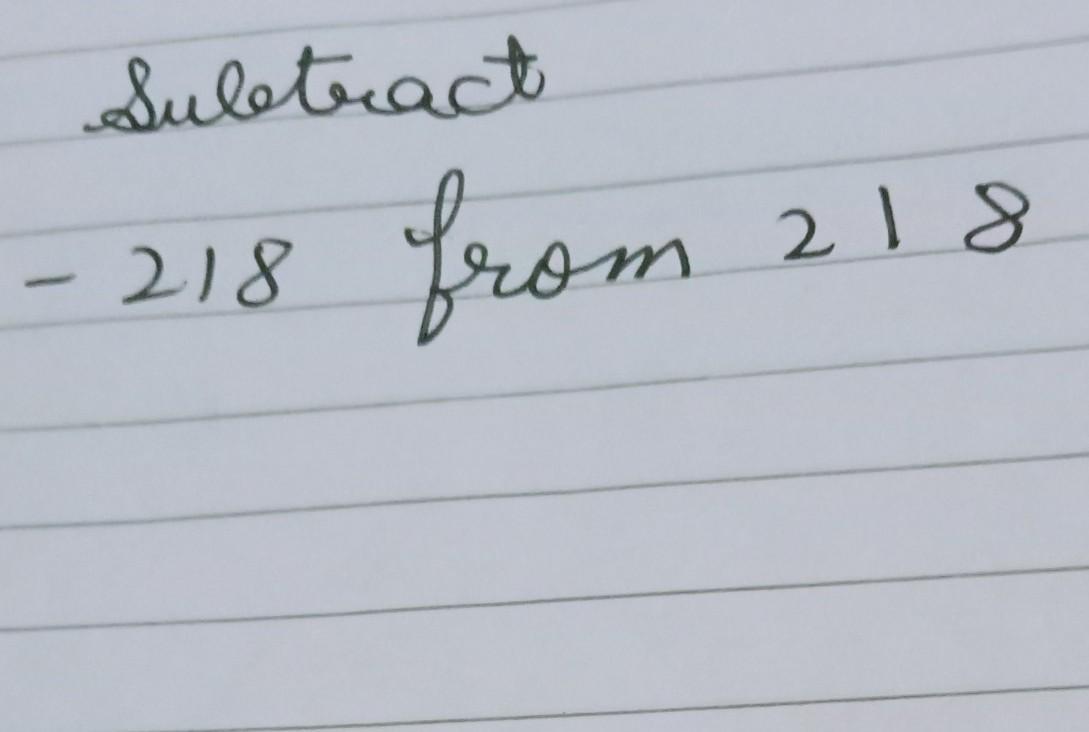 Subtract
- 218 from 218